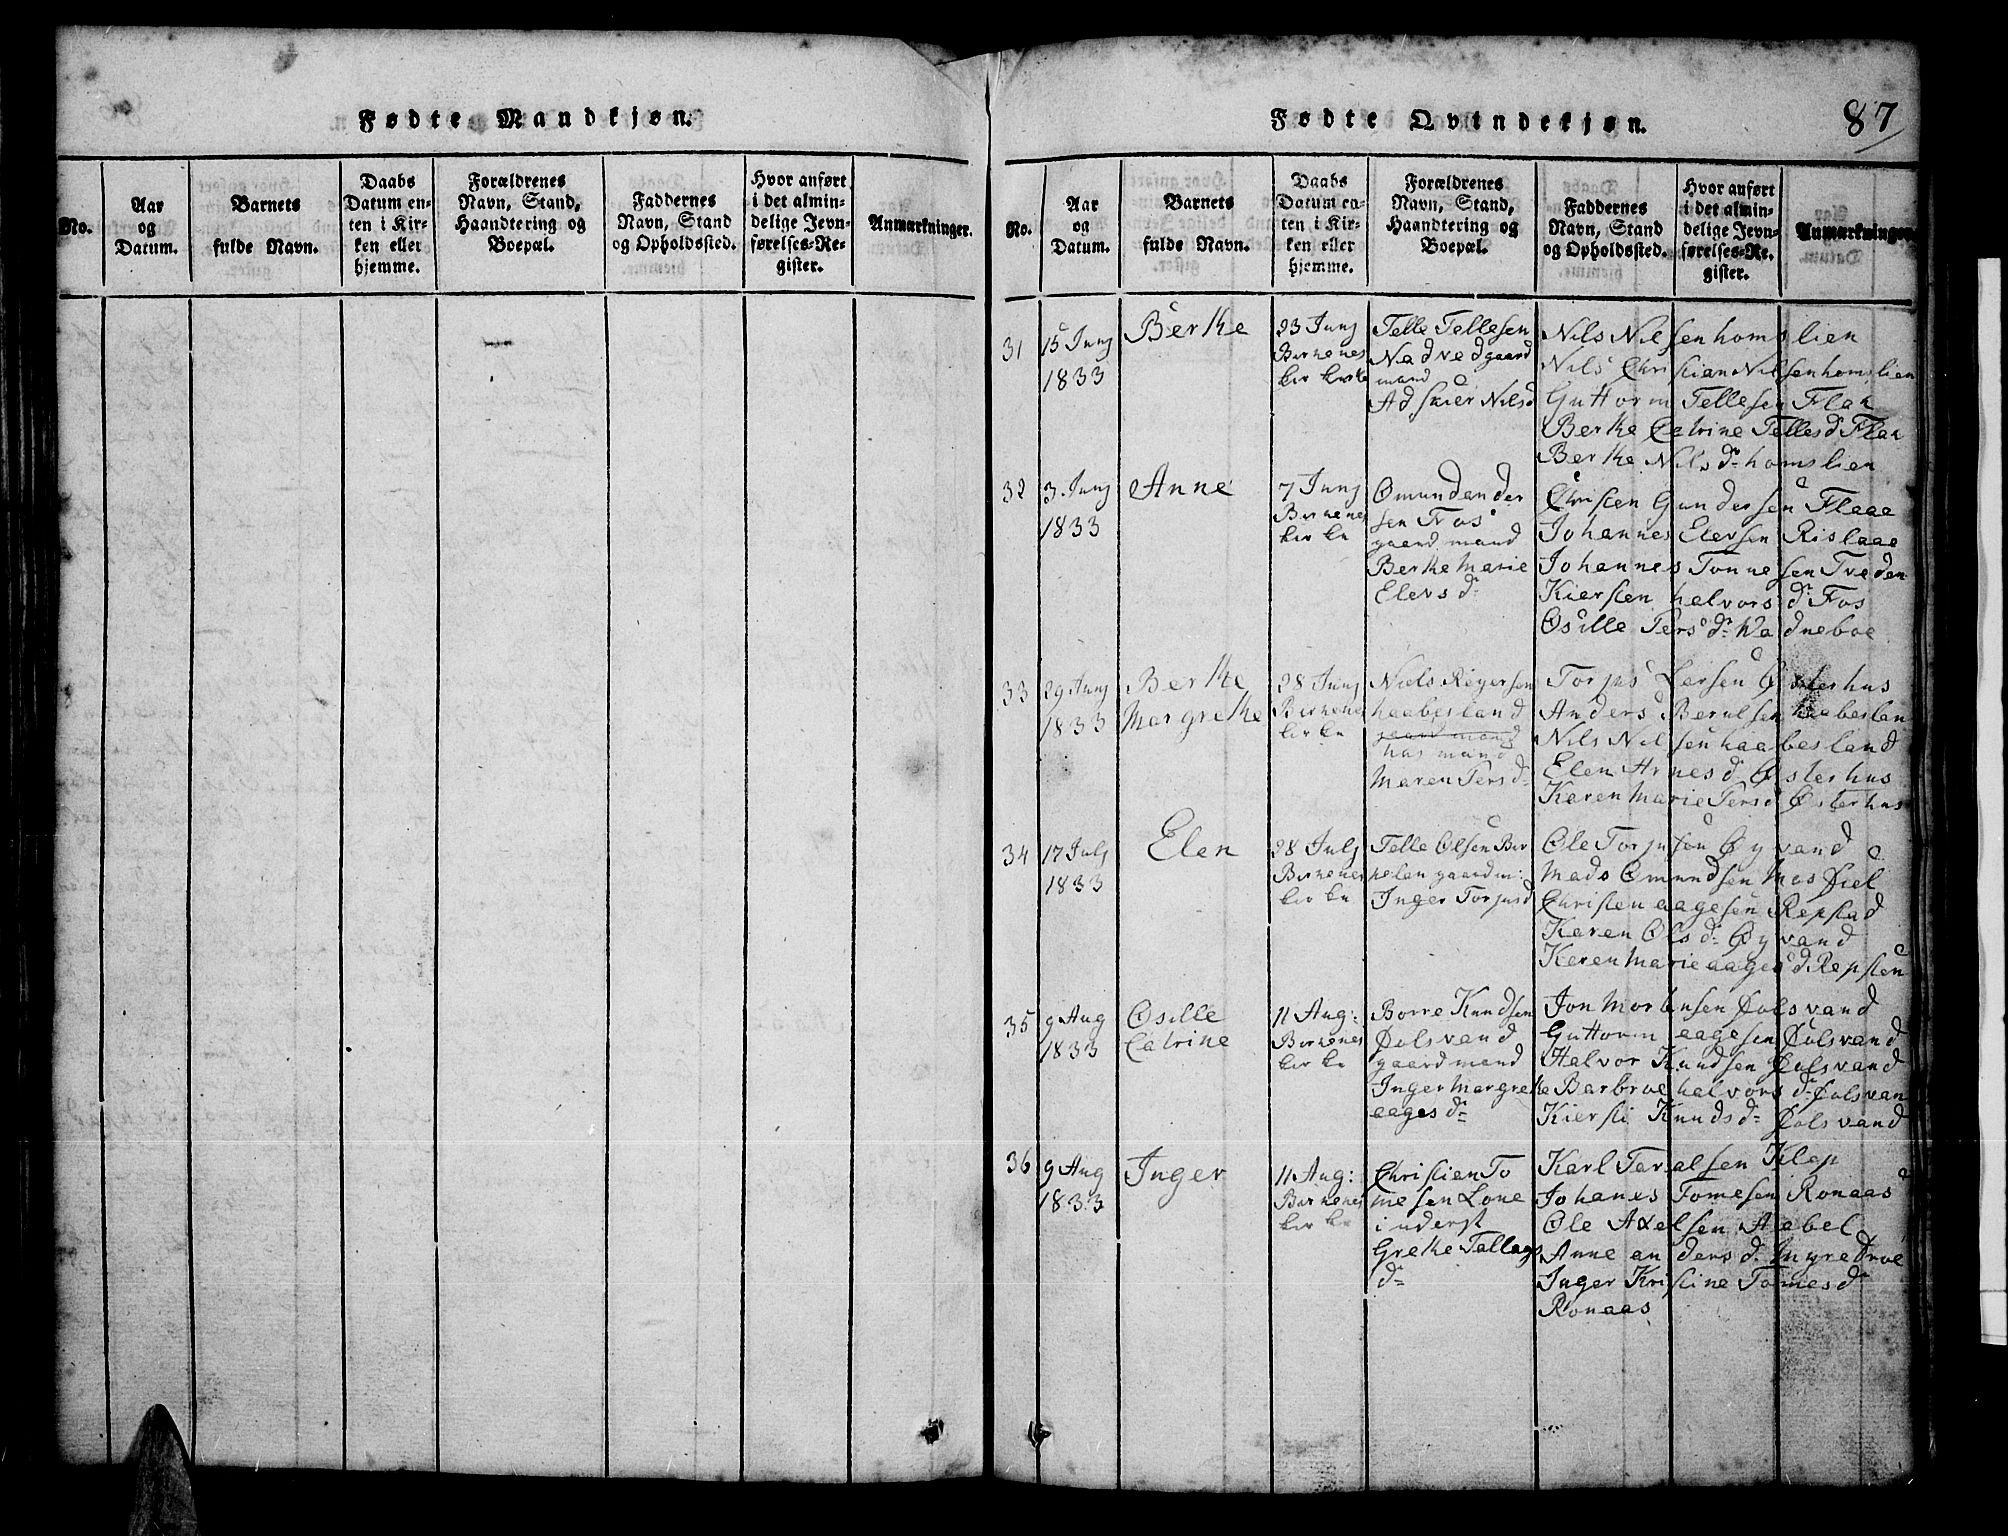 Fødte Mandkjøn.
No.
Aar
og
Datum.
Barnets
fulde Navn.
Daabs
Datum en-
ten i Kir-
ken eller
hjemme.
Forældrenes
Navn, Stand,
Haandtering og
Boepæl.
Faddernes
Navn, Stand
og Opholdssted.
Hvor anført
i det almin-
delige Jevn-
førelses-Re-
gister.
Anmærkninger.
Fødte Qvindekjøn.
87
No.
Aar
og
Datum.
Barnets
fulde Navn.
Daabs
Datum en-
ten i Kir-
ken eller
hjemme.
Forældrenes
Navn, Stand,
Haandtering og
Boepæl.
Faddernes
Navn, Stand
og Opholdssted.
Hvor anført
i det almin-
delige Jevn-
førelses-Re-
gister.
Anmærkninger
31
15 Junj
1833
Berthe
23 Junj
Birkenes
kir kke
Telle Tellesen
Nedved gaard
mand
Nilsd
Nils Nilsen homslien
Nils Christian Nilsen homslien
Guttorm Tellesen Flak
Berthe Catrine Tellesd Flak
Berthe Nilsdr homslien
32
3 Junj
1833
Anne
7 Junj
Birkenes
kir ke
Omund ander
sen Fos
gaard mand
Berthe Marie
Elevsdr
Christen Gundersen Flaae
Johannes Elevsen Rislaae
Johannes Tonnesen Tveden
Kiersten halvorsdr Fos
Osille Tersdr Vadneboe
33
29 Junj
1833
Berthe
Margrethe
28 Junj
Birkenes
kir ke
Niels Reiersen
haabesland
gaard mand
hus mand
Maren Tersdr
Torjus Larsen Østerhus
Anders Berulsen haabeslan
Nils Nilsen haabesland
Elen Arnesdr Østerhus
Karen Marie Tersd Østerhus
34
17 Julj
1833
Elen
28 Julj
Birkenes
kir ke
Telle Olsen Bir
kelan gaard m:
Inger Torjusd
Ole Torjusen Øyvand
Mads Omundsen Mosfiel
Christen aagesen Repstad
Karen Olsdr Øyvand
Karen Marie aagesdr Repsten
35
9 Aug
1833
Osille
Catrine
11 Aug:
Birkenes
kir ke
Borre Knudsen
Dolsvand
gaard mand
Inger Margrethe
aagesdr
Jon Mortensen Dolsvand
Guttorm aagesen Dolsvand
Halvor Knudsen Dolsvand
Barbroe halvorsdr Dolsvan
Kiersti Knudsdr Dolsvand
36
9 Aug
1833
Inger
11 Aug:
Birkenes
kir ke
Christien To
mesen Lone
inderst
Grethe Tallags
dr
Karl Terjelsen Klep
Johanes Tomesen Ronaas
Ole Axelsen Aabel
Anne andersdr
Inger Kristine Tomesdr
Ronaas